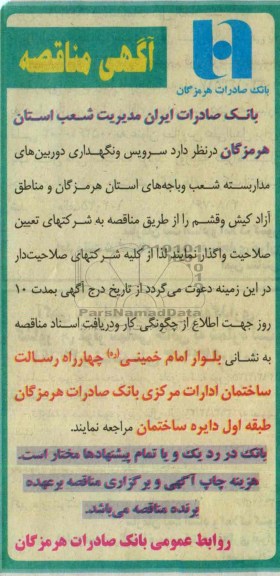 آگهی مناقصه
بانک صادرات هرمزگان
بانک صادرات ایران مدیریت شعب استان
هرمزگان درنظر دارد سرویس ونگهداری دوربین‌های
مداربسته شعب وباجه‌های استان هرمزگان و مناطق
آزاد کیش وقشم را از طریق مناقصه به شرکتهای تعیین
صلاحیت واگذار نماید.لذا از کلیه شرکتهای صلاحیت‌دار
در این زمینه دعوت می‌گردد از تاریخ درج آگهی بمدت ۱۰
روز جهت اطلاع از چگونگی کار ودریافت اسناد مناقصه
ParsNamadData
به نشانی بلوار امام خمینی(ره) چهارراه رسالت
ساختمان ادارات مرکزی بانک صادرات هرمزگان
طبقه اول دایره ساختمان مراجعه نمایند.
بانک در رد یک و یا تمام پیشنهادها مختار است.
هزینه چاپ آگهی و برگزاری مناقصه برعهده
برنده مناقصه می‌باشد.
روابط عمومی بانک صادرات هرمزگان